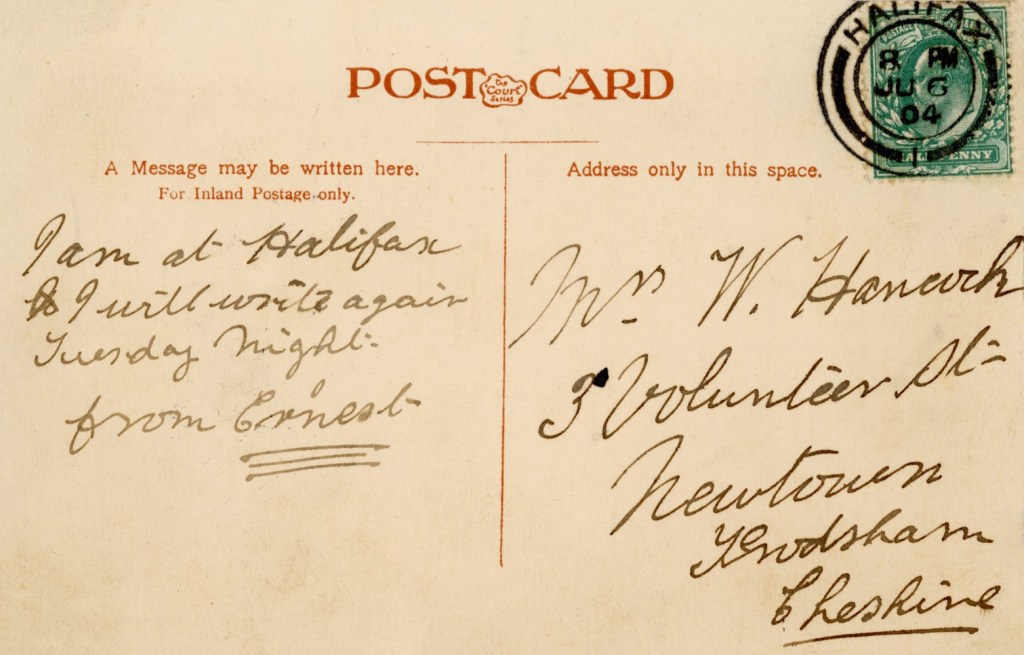 POST The Court Series CARD
A Message may be written here.
For Inland Postage only.
Address only in this space.
HALIFAX
8 PM
JU 6
04
1
POSTAGE
HALFPENNY
I am at Halifax
& I will write again
Tuesday Night.
from Ernest
Mrs W. Hancock
3 Volunteer St
Newtown
Frodsham
Cheshire